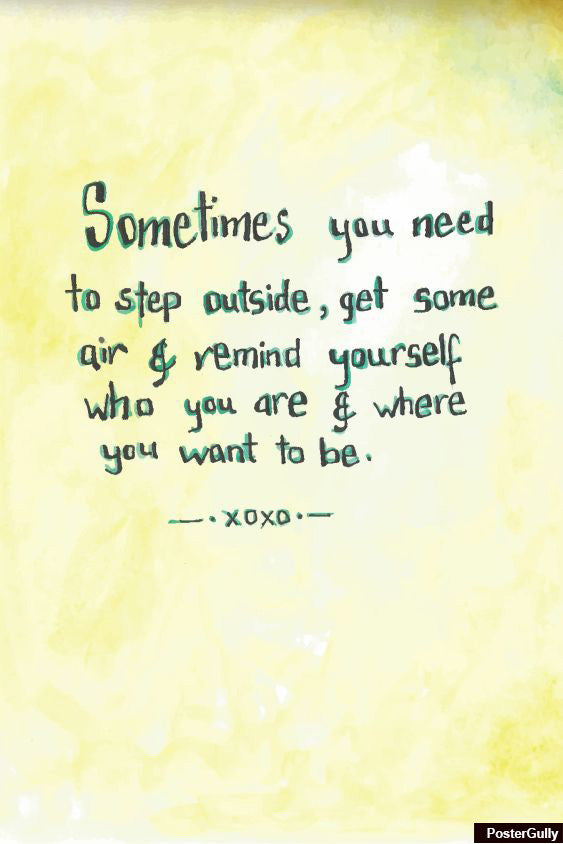 Sometimes you need
to step outside, get some
air & remind yourself
who you are & where
you want to be.
—·xoxo·—
PosterGully